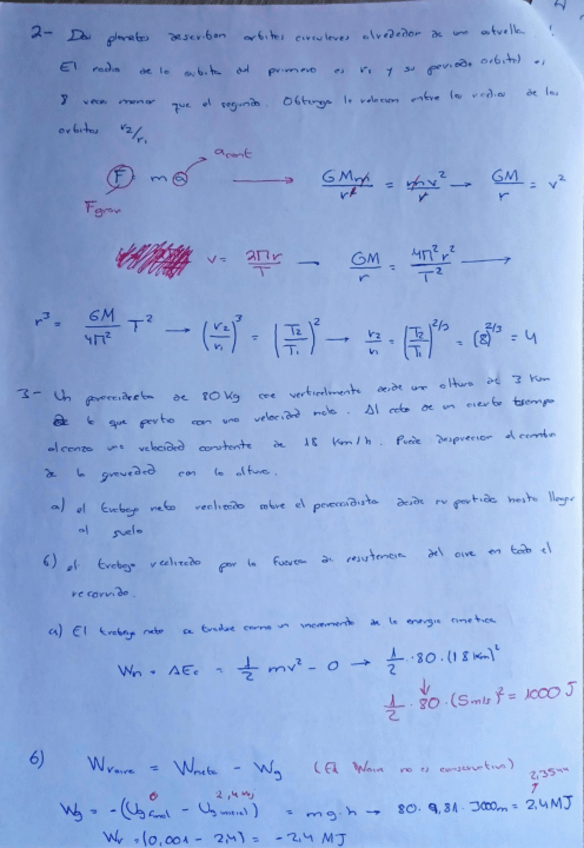 2- Dos planetas describen orbitas circulares alrededor de una estrella.
El radio de la orbita del primero es r₁ y su periodo orbital es
8 veces menor que el segundo. Obtenga la relacion entre los radios de las
orbitas r₂/r₁
F m a acent → GMm/r² = mv²/r → GM/r = v²
Fgrav
v = 2πr/T → GM/r = 4π²r²/T² →
r³ = GM/4π² T² → (r₂/r₁)³ = (T₂/T₁)² → r₂/r₁ = (T₂/T₁)^2/3 = (8)^2/3 = 4
3- Un paracaidista de 80 Kg cae verticalmente desde una altura de 3 Km
la que partio con una velocidad nula. Al cabo de un cierto tiempo
alcanza una velocidad constante de 18 Km/h. Puede despreciar el cambio
de la gravedad con la altura.
a) el trabajo neto realizado sobre el paracaidista desde su partida hasta llegar
al suelo
b) el trabajo realizado por la fuerza de resistencia del aire en todo el
recorrido.
a) El trabajo neto se traduce como un incremento de la energia cinetica
Wn = ΔEc = 1/2 mv² - 0 → 1/2 · 80 · (18 Km)²
1/2 · 80 · (5m/s)² = 1000 J
b) Wraire = Wneto - Wg (El Waire no es conservativo)
0 2,4 MJ 2,3544
Wg = -(Ug final - Ug inicial) = mg·h → 80 · 9,81 · 3000m = 2,4MJ
Wr = (0,001 - 2,4) = -2,4 MJ